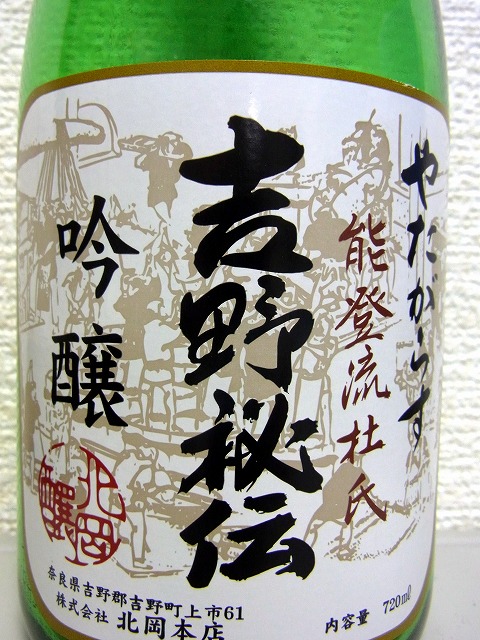 やたがらす
能登流杜氏
吉野秘伝
吟醸
北岡
醸
奈良県吉野郡吉野町上市61
株式会社 北岡本店
内容量 720ml